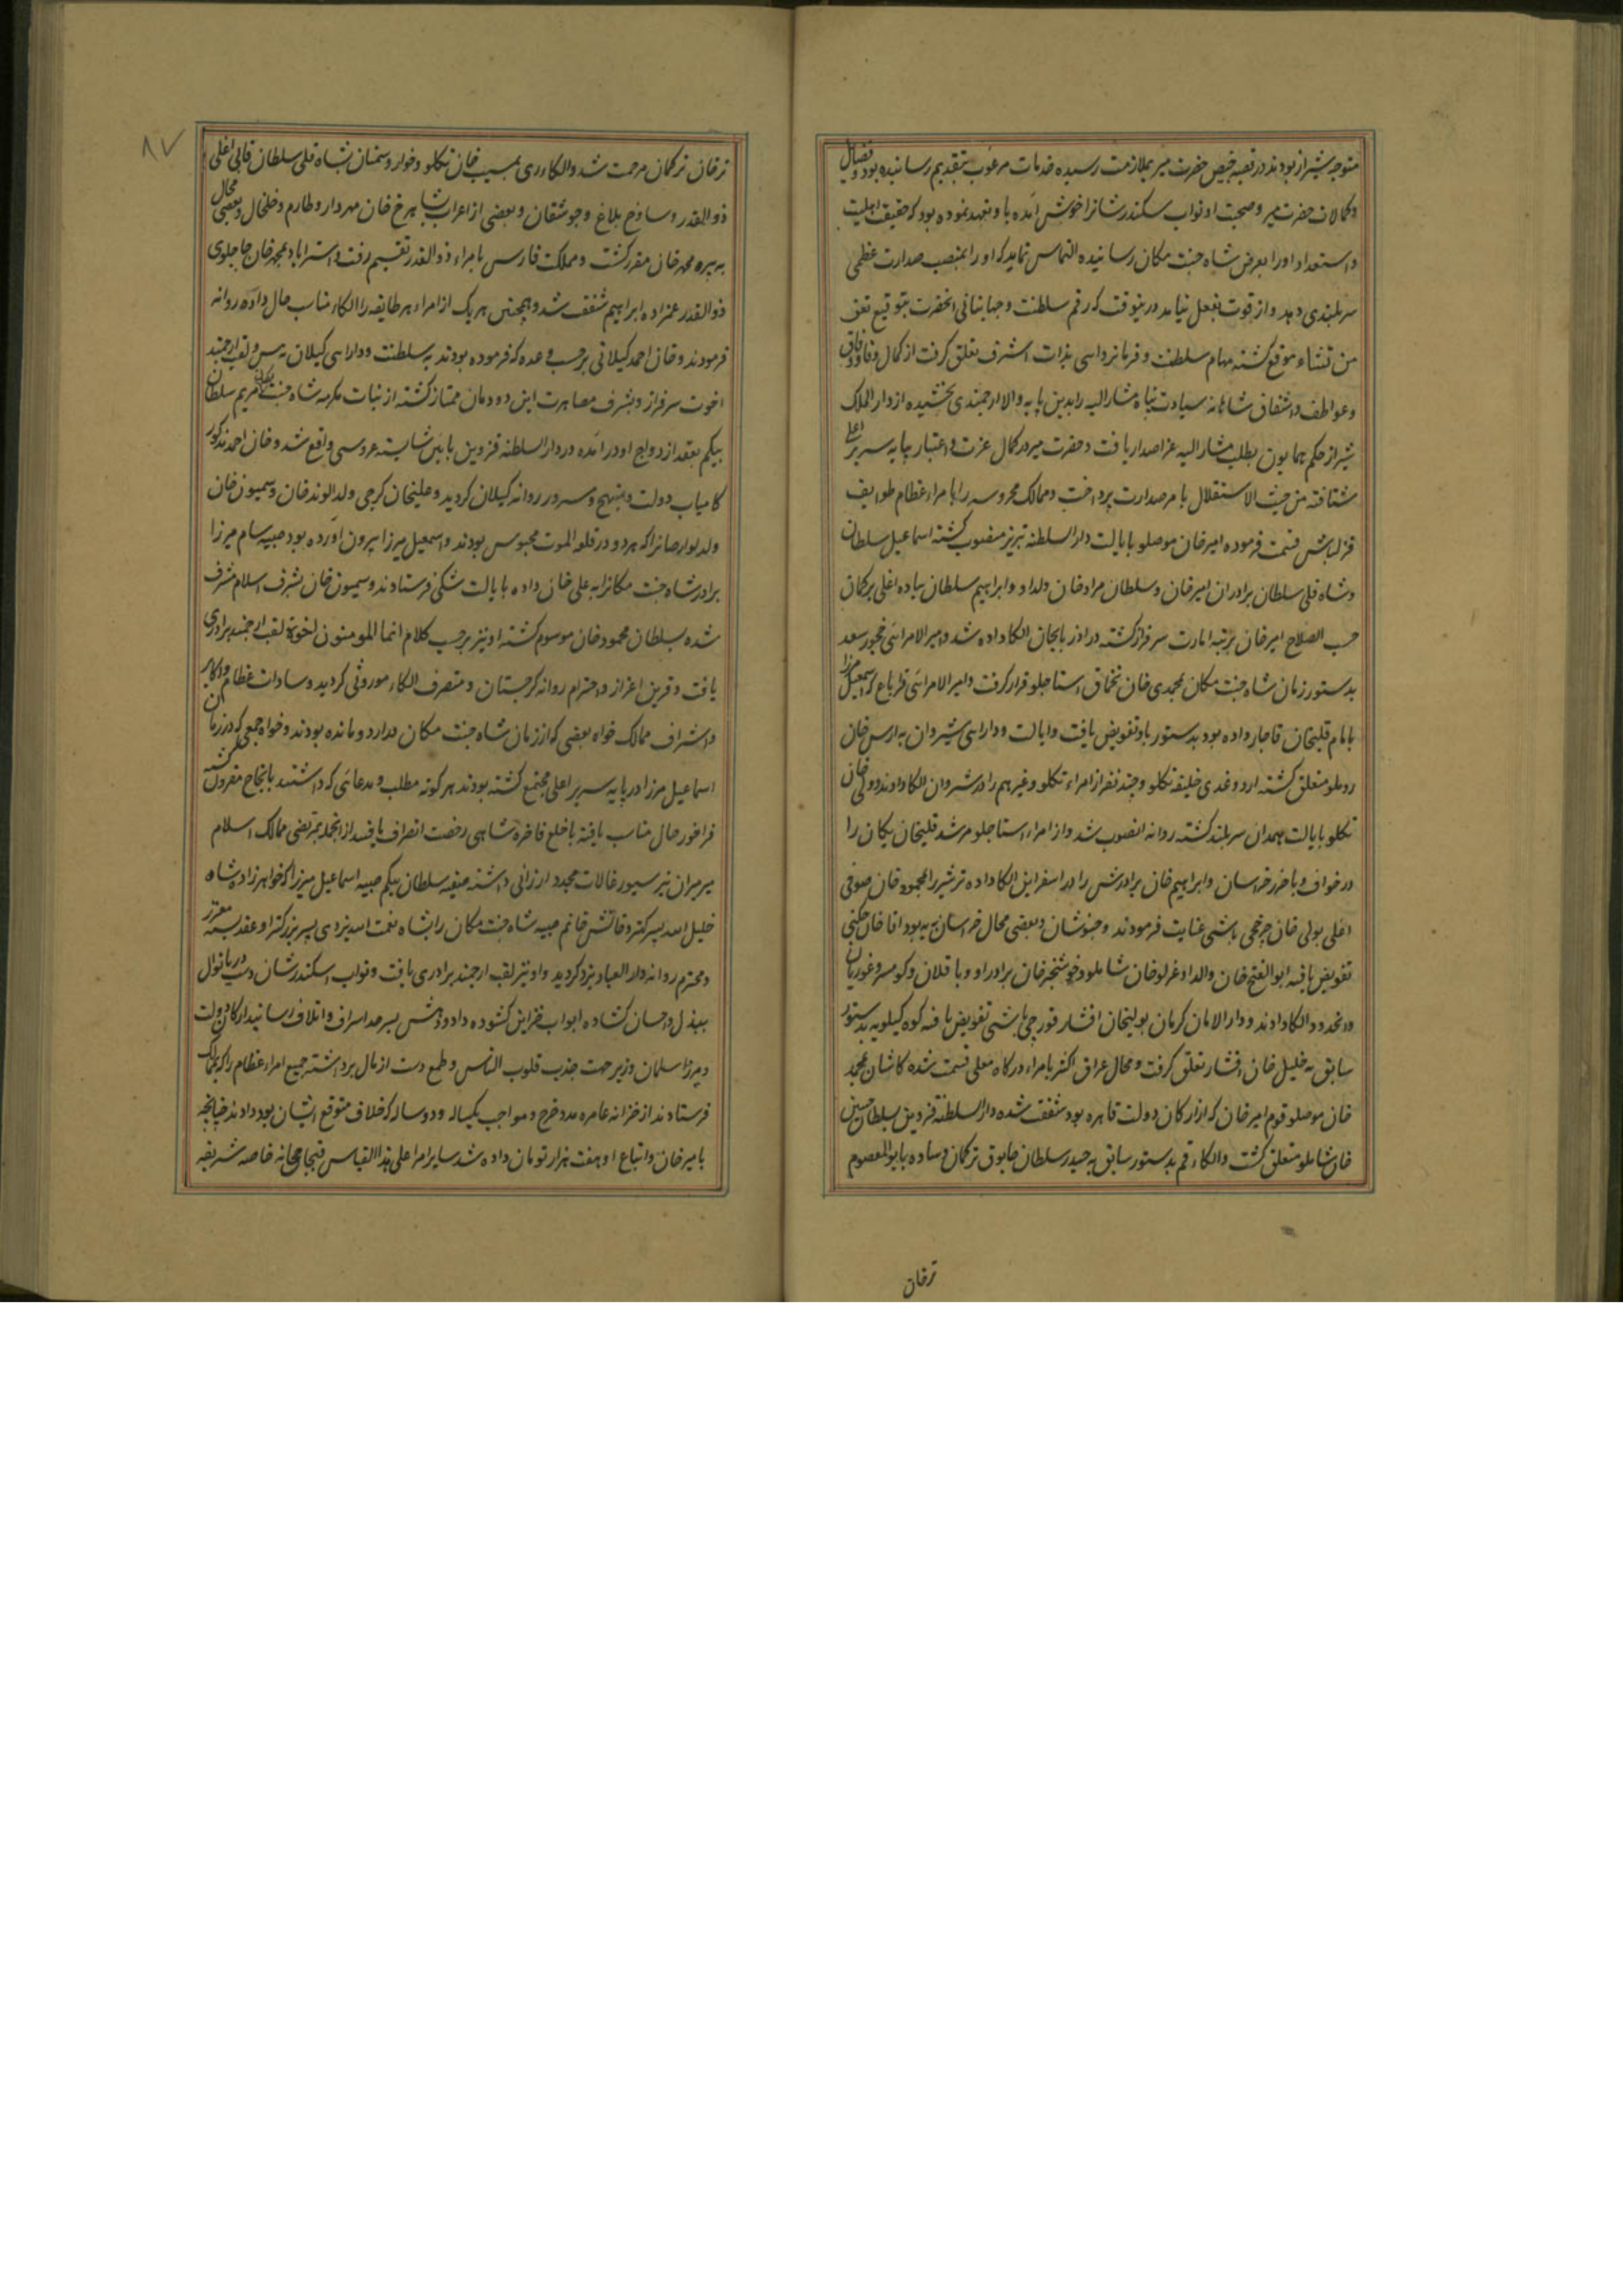 متوجه شیراز بودند در قصبه خبیص حضرت میر بملازمت رسیده خدمات مرغوب بتقدیم رسانیده بود و فضایل
و کمالات حضرت میر و صحبت او نواب سکندرشانرا خوش آمده با و تعهد نموده بود که حقیقت اهلیت
و استعداد او را بعرض شاه جنت مکان رسانیده التماس نماید که او را بمنصب صدارت عظمی
سربلندی دهد و از قوت بفعل نیامد درینوقت که رقم سلطنت و جهانبانی آنحضرت بتوقیع تعز
من تشاء موقع گشته مهام سلطنت و فرمانروایی بذات اشرف تعلق گرفت از کمال وفا و وفاق
و عواطف و اشفاق شاهانه سیادت پناه مشار الیه را بدین پایه والا ارجمندی بخشیده از دار الملک
شیراز حکم همایون بطلب مشار الیه عز اصدار یافت و حضرت میر در کمال عزت و اعتبار بپایه سریر اعلی
شتافته من حیث الاستقلال بامر صدارت پرداخت و ممالک محروسه را بامراء عظام طوایف
قزلباش قسمت فرموده امیر خان موصلو بایالت دار السلطنه تبریز منصوب گشته اسماعیل سلطان
و شاه قلی سلطان برادران امیرخان و سلطان مراد خان ولد او و ابراهیم سلطان بیاده اغلی ترکمان
حسب الصلاح امیر خان برتبه امارت سرفراز گشته در اذربایجان الکا داده شد و امیر الامرائی چخور سعد
بدستور زمان شاه جنت مکان بمحمدی خان تخماق استاجلو قرار گرفت و امیر الامرائی قراباغ که اسمعیل میرزا
بامام قلیخان قاجار داده بود بدستور باو تفویض یافت و ایالت و دارایی شیروان به ارس خان
روملو متعلق گشته اردوغدی خلیفه تکلو و چند نفر از امراء تکلو و غیرهم را در شروان الکا دادند و ولی خان
تکلو بایالت همدان سربلند گشته روانه انصوب شد و از امراء استاجلو مرشد قلیخان یکان را
در خواف و باخرز خراسان و ابراهیم خان برادرش را در اسفراین الکا داده ترشیز را بمحمود خان صوفی
اغلی بولی خان چرخچی باشی عنایت فرمودند و خبوشان و بعضی محال خراسان به بوداق خان چکنی
تفویض یافته ابو الفتح خان والد اوغرلو خان شاملو و خوشخبر خان برادر او و با قلان و کوسه و غوریان
در انحدود الکا دادند و دار الامان کرمان بولیخان افشار قورچی باشی تفویض یافته کوه کیلویه بدستور
سابق به خلیل خان افشار تعلق گرفت و محال عراق اکثر بامراء درکاه معلی قسمت شده کاشان بمحمد
خان موصلو قوم امیرخان که از ارکان دولت قاهره بود شفقت شده دار السلطنه قزوین بسلطان حسین
خان شاملو متعلق گشت و الکاء قم بدستور سابق به حیدر سلطان چابوق ترکمان و ساوه بابو المعصوم
ترخان
۸۷
ترخان ترکمان مرحمت شد و الکاء ری بمسیب خان تکلو و خوار و سمنان بشاه قلی سلطان قابی اغلی
ذو القدر و ساوخ بلاغ و جوشقان و بعضی از اعراب بشاهرخ خان مهردار و طارم و خلخال و بعضی محال
به پیره محمد خان مقرر گشت و مملکت فارس بامراء ذو القدر تقسیم رفت و استراباد بمحمد خان حاجلوی
ذو القدر عمزاده ابراهیم شفقت شد و همچنین هر یک از امراء هر طایفه را الکاء مناسب حال داده روانه
فرمودند و خان احمد کیلانی برحسب وعده که فرموده بودند به سلطنت و دارایی کیلان به پس و لقب ارجمند
اخوت سرفراز و بشرف مصاهرت این دودمان ممتاز گشته از بنات مکرمه شاه جنت مکان مریم سلطان
بیکم بعقد ازدواج او در آمده در دار السلطنه قزوین بآیین شایسته عروسی واقع شد و خان احمد مذکور
کامیاب دولت و مبتهج و مسرور روانه کیلان کردید و علیخان کرجی ولد الوند خان و سمیون خان
ولد لوارصاب را که هر دو در قلعه الموت محبوس بودند و اسمعیل میرزا بیرون آورده بود صبیه سام میرزا
برادر شاه جنت مکانرا به علی خان داده بایالت شکی فرستادند و سمیون خان بشرف اسلام مشرف
شده بسلطان محمود خان موسوم گشته او نیز برحسب کلام انما المومنون اخوة لقب ارجمند برادری
یافت و قرین اعزاز و احترام روانه کرجستان و متصرف الکاء موروثی کردید و سادات عظام و اکابر
و اشراف ممالک خواه بعضی که از زمان شاه جنت مکان در اردو مانده بودند و خواه جمعی که در زمان آن
اسماعیل میرزا در پایه سریر اعلی مجتمع گشته بودند هر کونه مطلب و مدعائی که داشتند بانجاح مقرون گشته
فراخور حال مناسب یافته با خلع فاخره شاهی رخصت انصراف یافتند از انجمله مرتضی ممالک اسلام
میرمیران نیز سیورغالات مجدد ارزانی داشته صفیه سلطان بیکم صبیه اسماعیل میرزا که خواهرزاده شاه
خلیل الله پسر کهتر و خانش خانم صبیه شاه جنت مکان را بشاه نعمت الله یزدی پسر بزرکتر او عقد بسته معزز
و محترم روانه دار العباد یزد کردید و او نیز لقب ارجمند برادری یافت و نواب اسکندرشان دست دریا نوال
ببذل و احسان کشاده ابواب خزاین کشوده داد و دهش بسرحد اسراف و اتلاف رسانید ارکان دولت
و میرزا سلمان وزیر جهت جذب قلوب الناس و طمع دست از مال برداشته جمیع امراء عظام را که بممالک
فرستادند از خزانه عامره مدد خرج و مواجب یکساله و دو ساله که خلاف متوقع ایشان بود دادند چنانچه
بامیر خان و اتباع او هفت هزار تومان داده شد سایر امرا علی هذا القیاس قیجاجیخانه خاصه شریفه